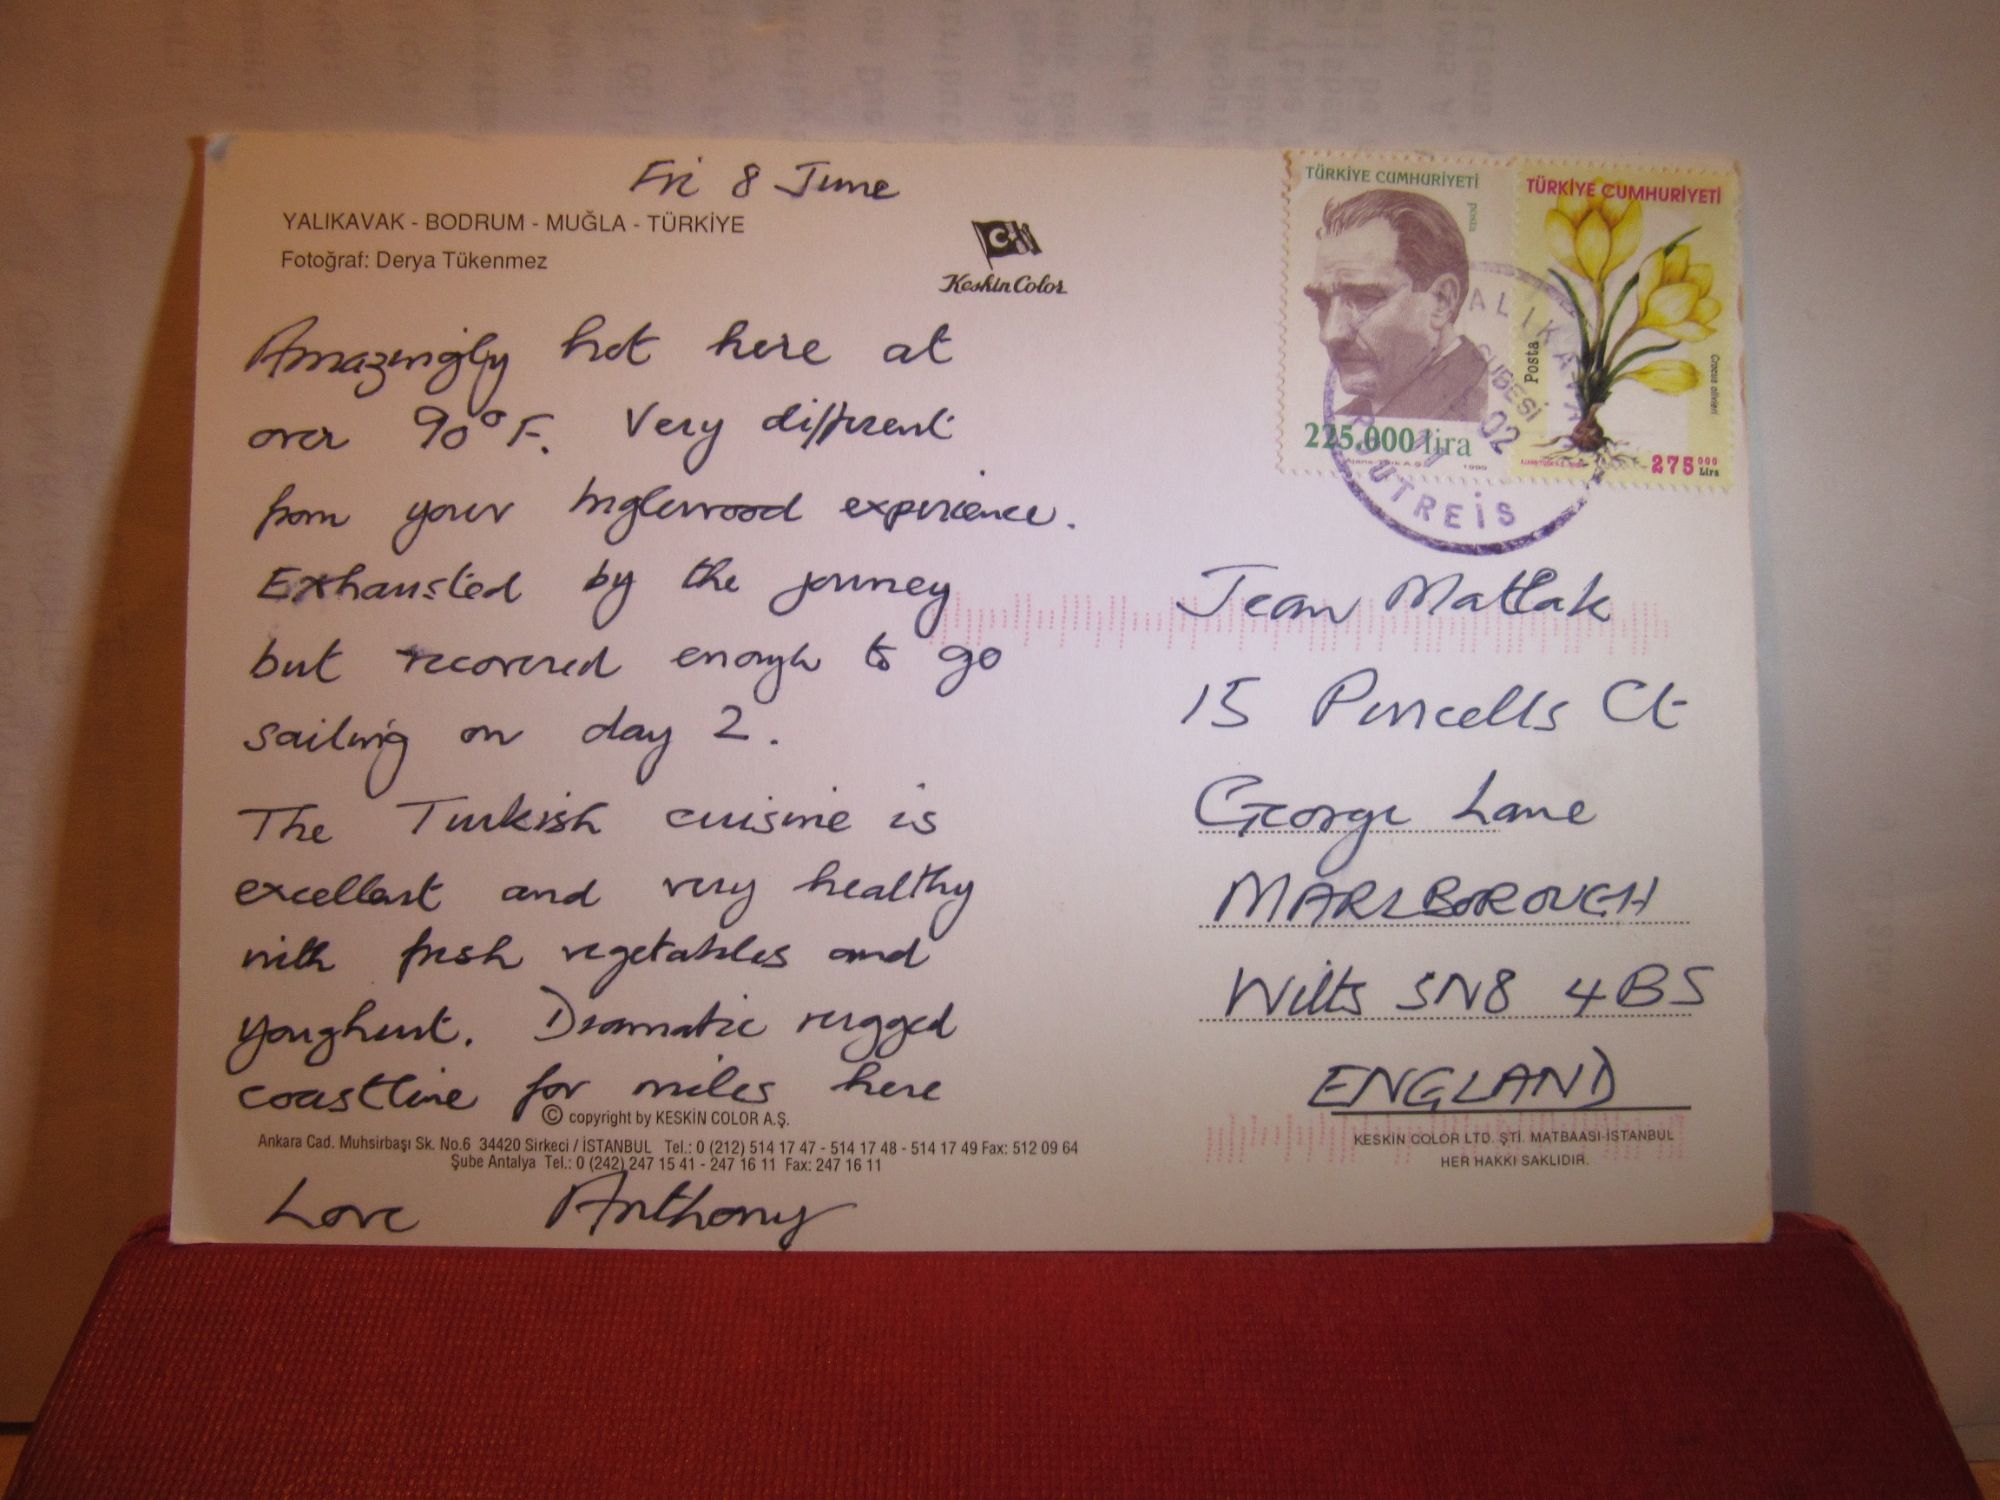 Fri 8 June
YALIKAVAK - BODRUM - MUĞLA - TÜRKİYE
Fotoğraf: Derya Tükenmez
Keskin Color
Amazingly hot here at
over 90°F. Very different
from your Inglewood experience.
Exhausted by the journey
but recovered enough to go
sailing on day 2.
The Turkish cuisine is
excellent and very healthy
with fresh vegetables and
youghurt. Dramatic rugged
coastline for miles here
© copyright by KESKİN COLOR A.Ş.
Ankara Cad. Muhsirbaşı Sk. No.6 34420 Sirkeci / İSTANBUL Tel.: 0 (212) 514 17 47 - 514 17 48 - 514 17 49 Fax: 512 09 64
Şube Antalya Tel.: 0 (242) 247 15 41 - 247 16 11 Fax: 247 16 11
Love Anthony
TÜRKİYE CUMHURİYETİ
posta
225.000 lira
1999
TÜRKİYE CUMHURİYETİ
Posta
Crocus olivieri
275 000 Lira
ALIKAVA
ŞUBESİ
02
UTREİS
Jean Matlak
15 Purcells Ct
George Lane
MARLBOROUGH
Wilts SN8 4BS
ENGLAND
KESKİN COLOR LTD. ŞTİ. MATBAASI-İSTANBUL
HER HAKKI SAKLIDIR.